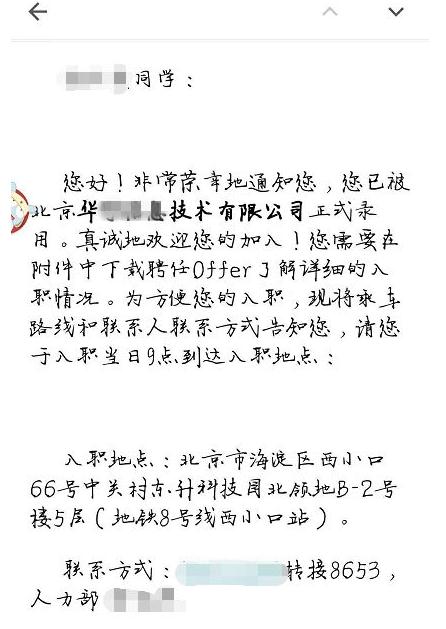 同学：
您好！非常荣幸地通知您，您已被
北京华息技术有限公司正式录
用。真诚地欢迎您的加入！您需要在
附件中下载聘任Offer了解详细的入
职情况。为方便您的入职，现将乘车
路线和联系人联系方式告知您，请您
于入职当日9点到达入职地点：
入职地点：北京市海淀区西小口
66号中关村东升科技园北领地B-2号
楼5层（地铁8号线西小口站）。
联系方式：转接8653，
人力部